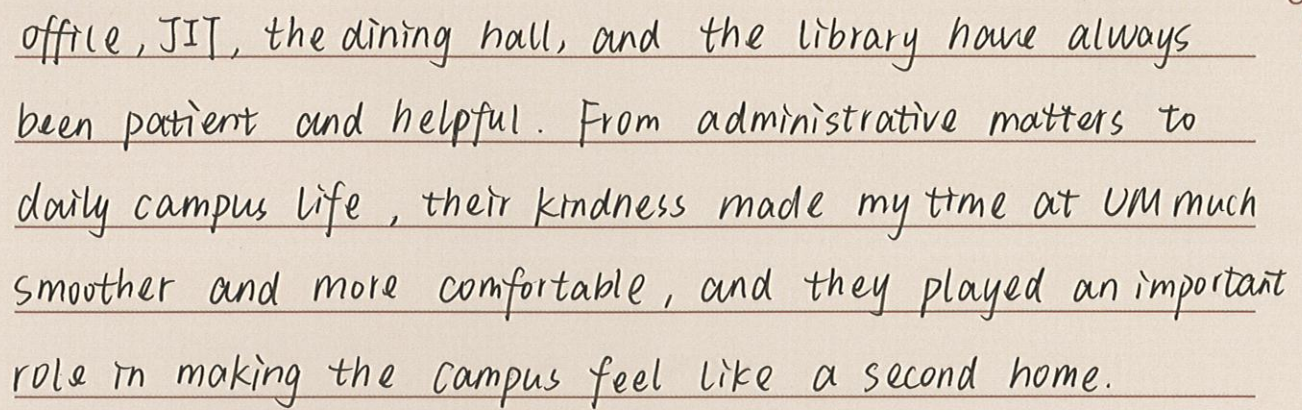 office, JIT, the dining hall, and the library have always
been patient and helpful. From administrative matters to
daily campus life, their kindness made my time at UM much
smoother and more comfortable, and they played an important
role in making the campus feel like a second home.